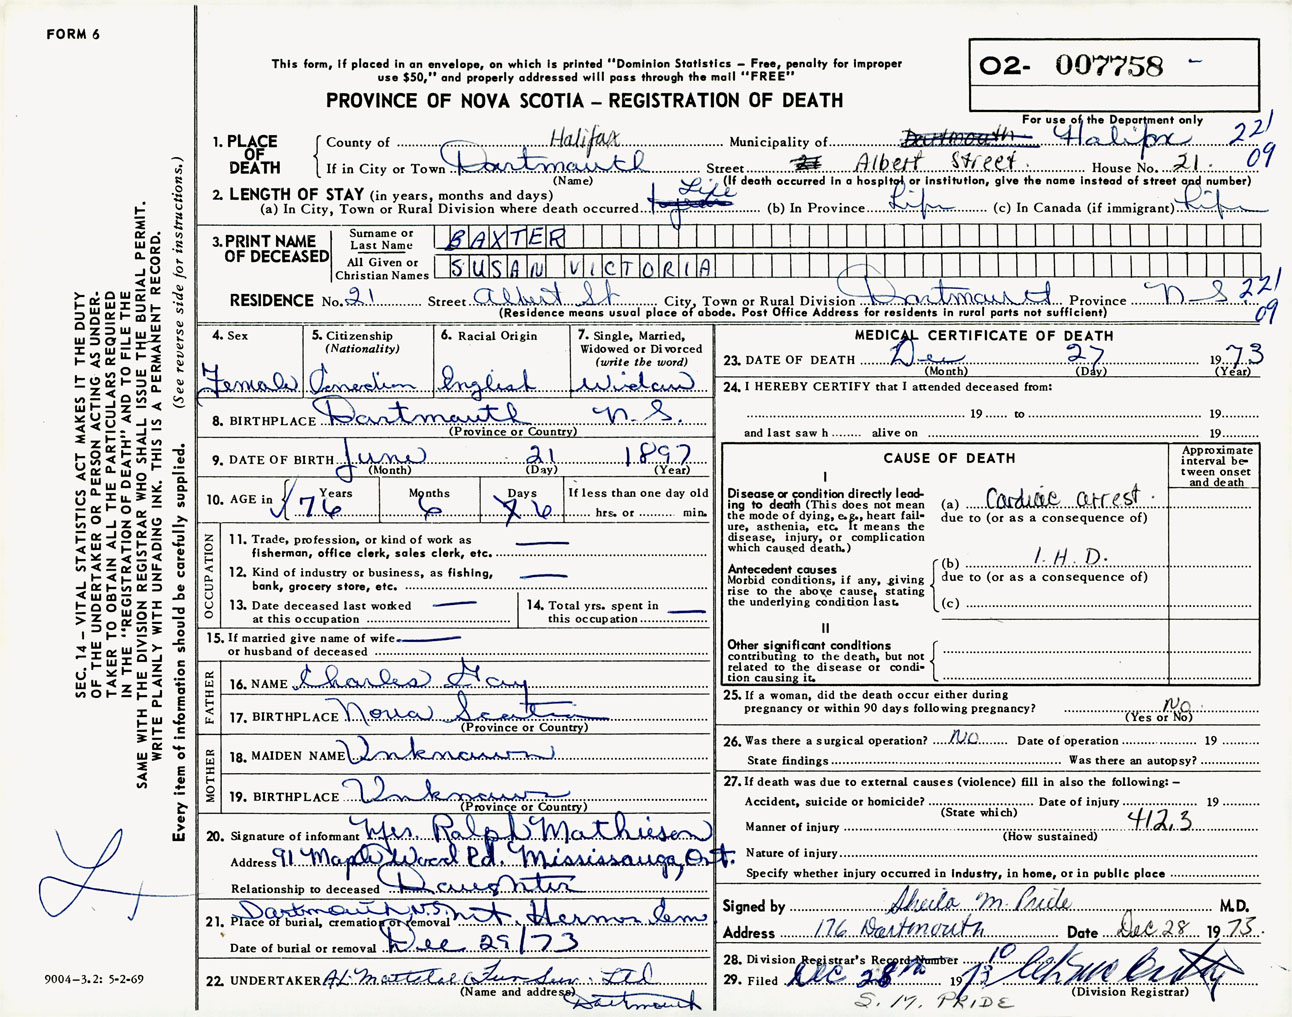 FORM 6
This form, if placed in an envelope, on which is printed "Dominion Statistics – Free, penalty for improper
use $50," and properly addressed will pass through the mail "FREE"
O2- 007758 -
PROVINCE OF NOVA SCOTIA – REGISTRATION OF DEATH
For use of the Department only
1. PLACE OF DEATH
County of Halifax Municipality of Dartmouth Halifax 221
If in City or Town Dartmouth Street 21 Albert Street. House No. 21. 09
(Name) (If death occurred in a hospital or institution, give the name instead of street and number)
2. LENGTH OF STAY (in years, months and days)
(a) In City, Town or Rural Division where death occurred Life (b) In Province Life (c) In Canada (if immigrant) Life
3. PRINT NAME OF DECEASED
Surname or Last Name BAXTER
All Given or Christian Names SUSAN VICTORIA
RESIDENCE No. 21 Street Albert St City, Town or Rural Division Dartmouth Province N-S 221
(Residence means usual place of abode. Post Office Address for residents in rural parts not sufficient) 09
4. Sex
Female
5. Citizenship
(Nationality)
Canadian
6. Racial Origin
English
7. Single, Married,
Widowed or Divorced
(write the word)
Widow
8. BIRTHPLACE Dartmouth N.S.
(Province or Country)
9. DATE OF BIRTH June 21 1897
(Month) (Day) (Year)
10. AGE in Years Months Days If less than one day old
76 6 6 hrs. or min.
OCCUPATION
11. Trade, profession, or kind of work as
fisherman, office clerk, sales clerk, etc.
12. Kind of industry or business, as fishing,
bank, grocery store, etc.
13. Date deceased last worked
at this occupation
14. Total yrs. spent in
this occupation
15. If married give name of wife
or husband of deceased
FATHER
16. NAME Charles Gay
17. BIRTHPLACE Nova Scotia
(Province or Country)
MOTHER
18. MAIDEN NAME Unknown
19. BIRTHPLACE Unknown
(Province or Country)
20. Signature of informant Mrs. Ralph Mathieson
Address 91 Maple Wood Rd. Mississauga, Ont.
Relationship to deceased Daughter
Dartmouth N.S. Mt. Hermon Cem
21. Place of burial, cremation or removal
Date of burial or removal Dec 29/73
22. UNDERTAKER Ltd
(Name and address)
Dartmouth
MEDICAL CERTIFICATE OF DEATH
23. DATE OF DEATH Dec 27 1973
(Month) (Day) (Year)
24. I HEREBY CERTIFY that I attended deceased from:
19 to 19
and last saw h alive on 19
CAUSE OF DEATH
Approximate
interval be-
tween onset
and death
I
Disease or condition directly lead-
ing to death (This does not mean
the mode of dying, e.g., heart fail-
ure, asthenia, etc. It means the
disease, injury, or complication
which caused death.)
(a) Cardiac arrest.
due to (or as a consequence of)
Antecedent causes
Morbid conditions, if any, giving
rise to the above cause, stating
the underlying condition last.
(b) I.H.D.
due to (or as a consequence of)
(c)
II
Other significant conditions
contributing to the death, but not
related to the disease or condi-
tion causing it.
25. If a woman, did the death occur either during
pregnancy or within 90 days following pregnancy? No
(Yes or No)
26. Was there a surgical operation? No Date of operation 19
State findings Was there an autopsy?
27. If death was due to external causes (violence) fill in also the following: –
Accident, suicide or homicide? Date of injury 19
(State which)
Manner of injury 412.3
(How sustained)
Nature of injury
Specify whether injury occurred in industry, in home, or in public place
Signed by Sheila M. Pride M.D.
Address 176 Dartmouth Date Dec 28 1973.
28. Division Registrar's Record Number 10
29. Filed Dec 28th 1973
(Division Registrar)
S. M. PRIDE
SEC. 14 – VITAL STATISTICS ACT MAKES IT THE DUTY
OF THE UNDERTAKER OR PERSON ACTING AS UNDER-
TAKER TO OBTAIN ALL THE PARTICULARS REQUIRED
IN THE "REGISTRATION OF DEATH" AND TO FILE THE
SAME WITH THE DIVISION REGISTRAR WHO SHALL ISSUE THE BURIAL PERMIT.
WRITE PLAINLY WITH UNFADING INK. THIS IS A PERMANENT RECORD.
Every item of information should be carefully supplied. (See reverse side for instructions.)
9004-3.2: 5-2-69